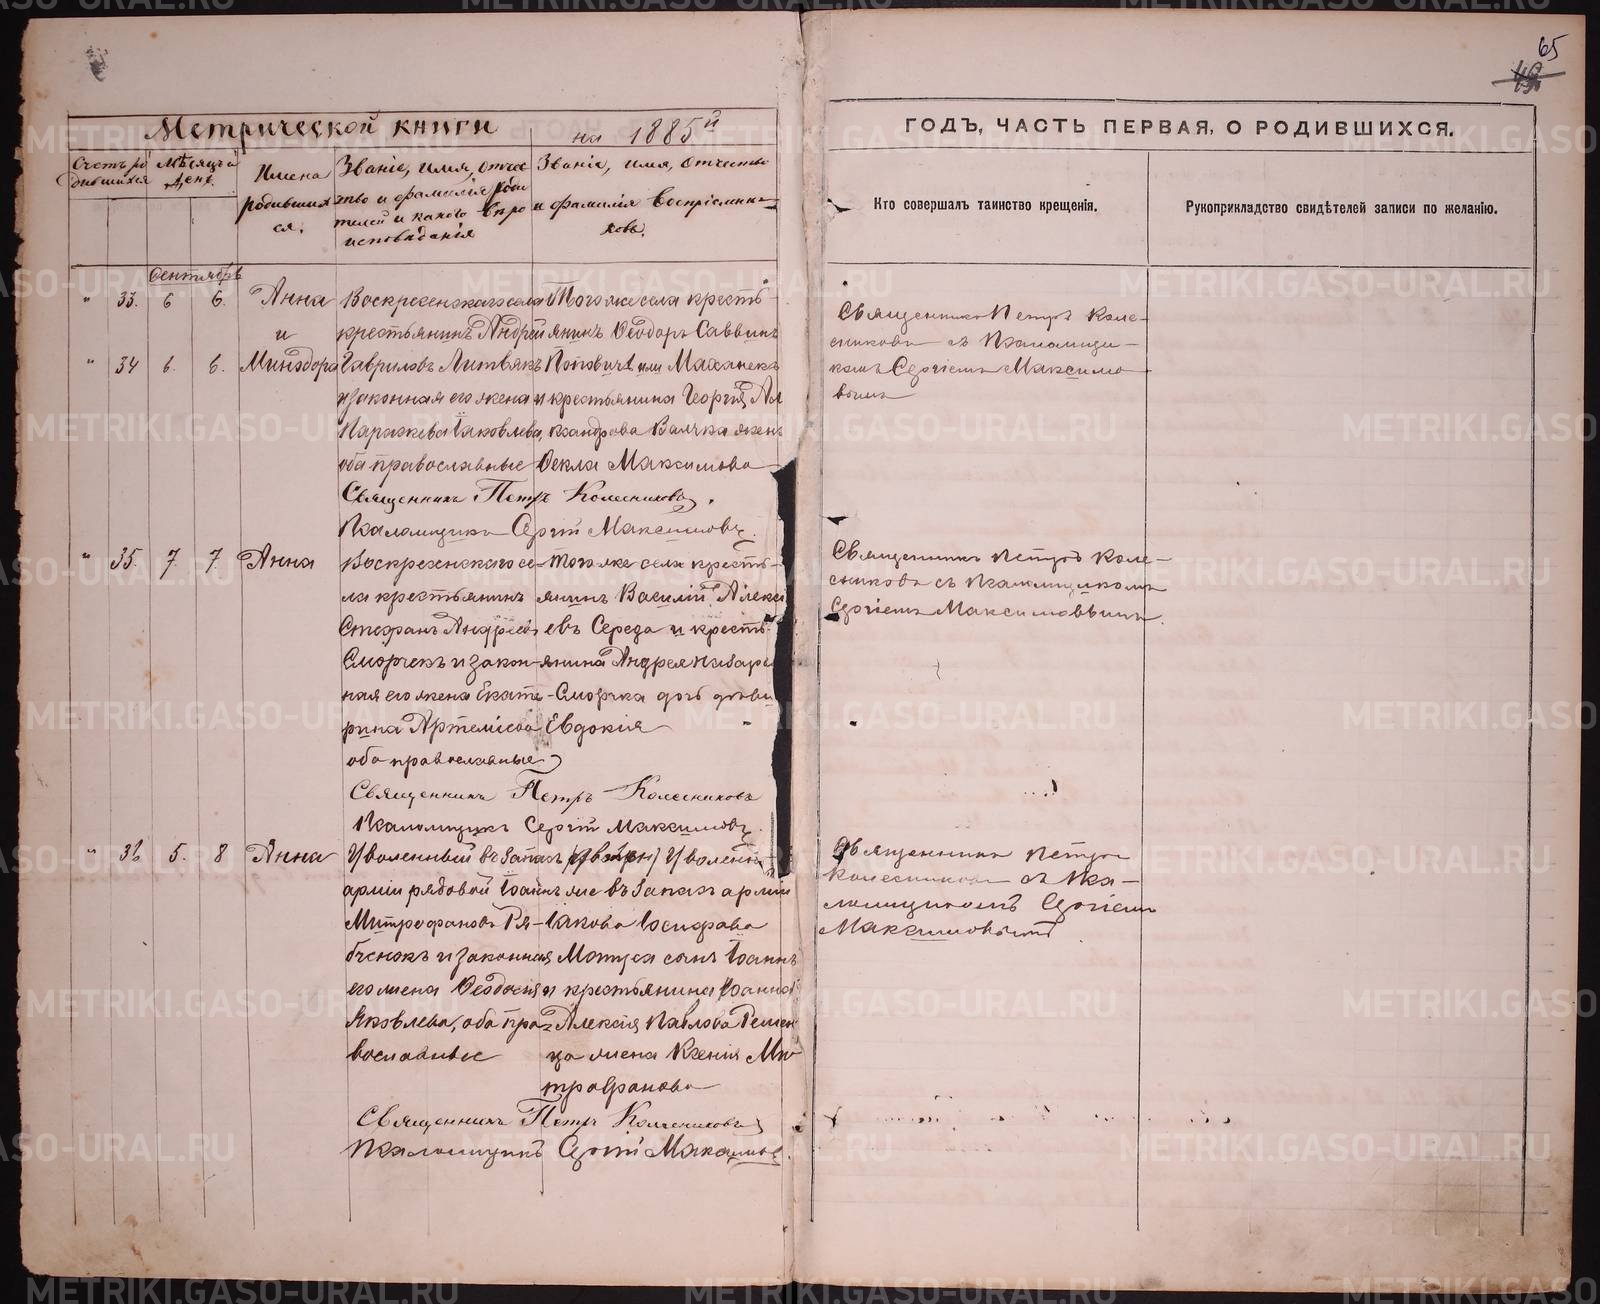 65
Метрической книги на 1885й
ГОДЪ, ЧАСТЬ ПЕРВАЯ, О РОДИВШИХСЯ.
Счетъ ро
дившихся
Мѣсяцъ и
день.
Имена
родивших
ся.
Званіе, имя, отчес
тво и фамилія роди
телей и какого вѣро
исповѣданія
Званіе, имя, отчество
и фамилія воспріемни
ковъ.
Кто совершалъ таинство крещенія.
Рукоприкладство свидѣтелей записи по желанію.
Сентябрь
" 33. 6 6. Анна
и
" 34 6. 6. Минодора
Воскресенскаго села
крестьянинъ Андрей
Гавриловъ Литвякъ
и законная его жена
Параскева Іаковлева,
оба православные
Того же села кресть-
янинъ Ѳеодоръ Саввинъ
Поповичъ или Маханекъ
и крестьянина Георгія Ал
ксандрова Валчка жена
Ѳекла Максимова
Священникъ Петръ Колесниковъ.
Псаломщикъ Сергій Максимовъ.
Священникъ Петръ Коле-
сниковъ съ Псаломщи-
комъ Сергіемъ Максимо
вымъ
" 35. 7 7 Анна
Воскресенскаго се-
ла крестьянинъ
Стефанъ Андреевъ
Сморчекъ и закон-
ная его жена Екате-
рина Артеміева
оба православные
того же села кресть-
янинъ Василій Алексі
евъ Середа и кресть-
янина Андрея
Сморчка дочь дѣви
Евдокія
Священникъ Петръ Колесниковъ
Псаломщикъ Сергій Максимовъ.
Священникъ Петръ Коле-
сниковъ съ Псаломщикомъ
Сергіемъ Максимовымъ.
" 36 5. 8 Анна
Уволенный въ Запасъ
арміи рядовой Іоаннъ
Митрофановъ Ря-
бченокъ и законная
его жена Ѳеодосія
Яковлева, оба пра-
вославные
Уволенна
же въ Запасъ арміи
Іакова Іосифова
сынъ Іоаннъ
и крестьянина
Алексія Павлова
жена Ксенія Ми
трофанова
Священникъ Петръ Колесниковъ
Псаломщикъ Сергій Максимовъ.
Священникъ Петръ
Колесниковъ съ Пса-
ломщикомъ Сергіемъ
Максимовымъ
METRIKI.GASO-URAL.RU